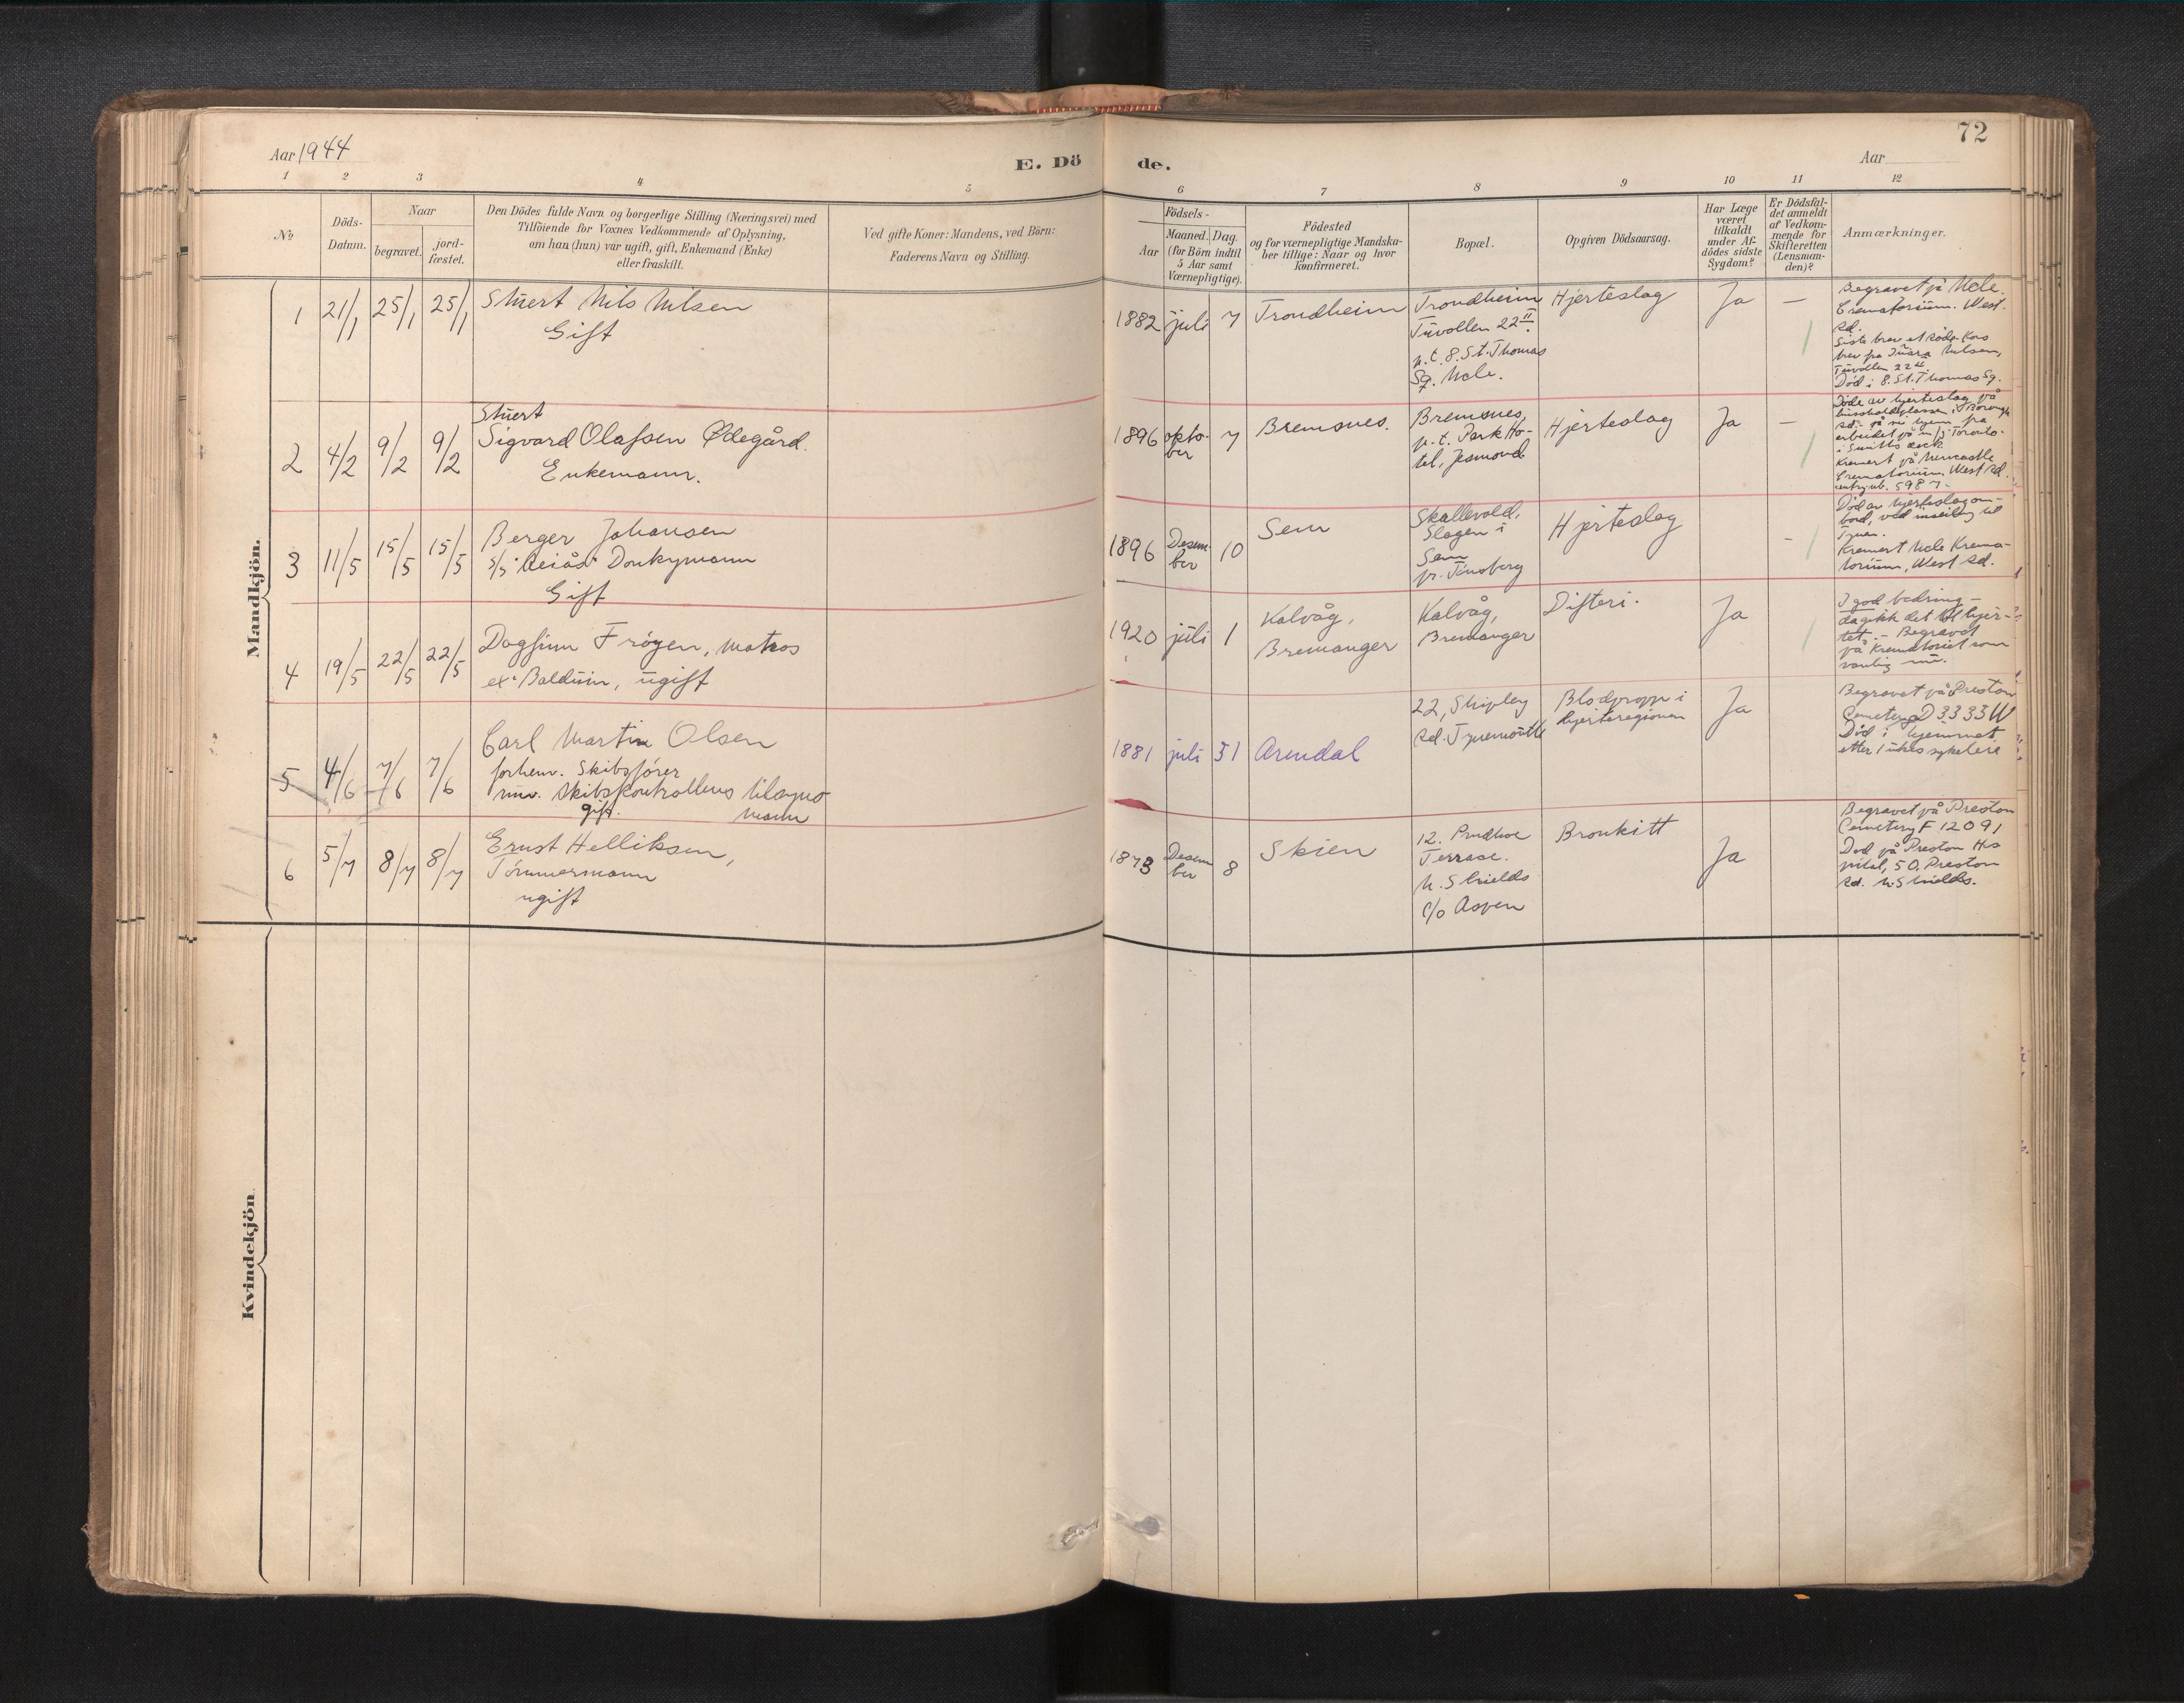 72
Aar 1944
E. Dö
de.
Aar
1 2 3 4 5
6 7 8 9 10 11 12
No
Döds-
Datum.
Naar
begravet.
jord-
fæstet.
Den Dödes fulde Navn og borgerlige Stilling (Næringsvei) med
Tilföiende for Voxnes Vedkommende af Oplysning,
om han (hun) var ugift, gift, Enkemand (Enke)
eller fraskilt.
Ved gifte Koner: Mandens, ved Börn:
Faderens Navn og Stilling.
Födsels-
Aar
Maaned. Dag.
(for Börn indtil
5 Aar samt
Værnepligtige).
Födested
og for værnepligtige Mandska-
ber tillige: Naar og hvor
konfirmeret.
Bopæl.
Opgiven Dödsaarsag.
Har Læge
været
tilkaldt
under Af-
dödes sidste
Sygdom?
Er Dödsfal-
det anmeldt
af Vedkom-
mende for
Skifteretten
(Lensman-
den)?
Anmærkninger.
Mandkjön.
1 21/1 25/1 25/1
Stuert Nils Nilsen
Gift
1882 juli 7
Trondheim
Trondheim
Tuvollen 22 II.
p.t. 8. St. Thomas
Sq. Ncle.
Hjerteslag
Ja
—
Begravet på Ncle.
Crematorium. West.
Rd.
Siste brev et Röde Kors
brev fra Nilsen,
Tuvollen 22
Död i 8. St. Thomas Sq.
2 4/2 9/2 9/2
Stuert
Sigvard Olafsen Ødegård.
Enkemann.
1896 okto-
ber 7
Bremsnes.
Bremsnes,
p.t. Park Ho-
tel, Jesmond
Hjerteslag
Ja
—
Döde av hjerteslag på
i Borough
Rd. på vei hjem fra
arbeidet på m/s Toronto
i Smiths dock
Kremert på Newcastle
Crematorium, West Rd.
entry nb. 5987.
3 11/5 15/5 15/5
Berger Johansen
s/s "Reiås" Donkymann
Gift
1896 Desem-
ber 10
Sem
Skallevold,
Slagen i
Sem
pr. Tønsberg
Hjerteslag
-
Död av hjerteslag om-
bord, ved inseiling til
Tynen.
Kremert Ncle Krema-
torium, West Rd.
4 19/5 22/5 22/5
Dagfinn Frøyen, matros
ex "Balduin, ugift
1920 juli 1
Kalvåg,
Bremanger
Kalvåg,
Bremanger
Difteri.
Ja
I god bedring –
da gikk det til hjer-
tet. – Begravet
på Krematoriet som
vanlig nu.
5 4/6 7/6 7/6
Carl Martin Olsen
forhenv. Skibsfører
nuv. Skibskontrollens tilsyns
gift. mann
1881 juli 31
Arendal
22, Shipley
Rd. Tynemouth
Blodpropp i
hjerteregionen
Ja
Begravet på Preston
Cemetery D 3333 W
Död i hjemmet
etter 1 ukes sykeleie
6 5/7 8/7 8/7
Ernst Helliksen,
Tömmermann
ugift
1873 Desem
ber 8
Skien
12. Prudhoe
Terrase.
N. Shields
c/o Aspen
Bronkitt
Ja
Begravet på Preston
Cemetery F 12091
Död på Preston Hos
pital, 50, Preston
Rd. N. Shields.
Kvindekjön.